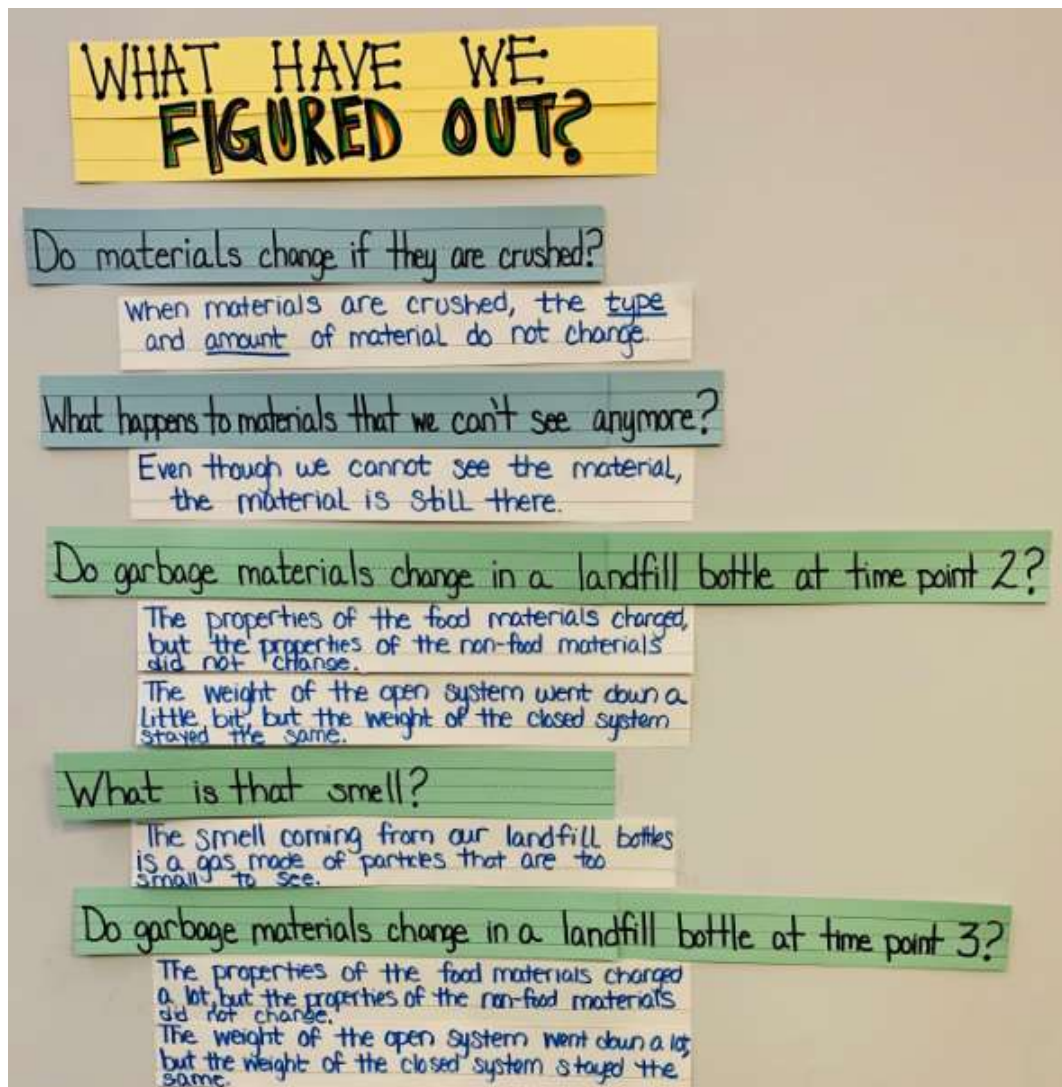 WHAT HAVE WE
FIGURED OUT?
Do materials change if they are crushed?
When materials are crushed, the type
and amount of material do not change.
What happens to materials that we can't see anymore?
Even though we cannot see the material,
the material is still there.
Do garbage materials change in a landfill bottle at time point 2?
The properties of the food materials changed,
but the properties of the non-food materials
did not change.
The weight of the open system went down a
little bit, but the weight of the closed system
stayed the same.
What is that smell?
The smell coming from our landfill bottles
is a gas made of particles that are too
small to see.
Do garbage materials change in a landfill bottle at time point 3?
The properties of the food materials changed
a lot, but the properties of the non-food materials
did not change.
The weight of the open system went down a lot,
but the weight of the closed system stayed the
same.